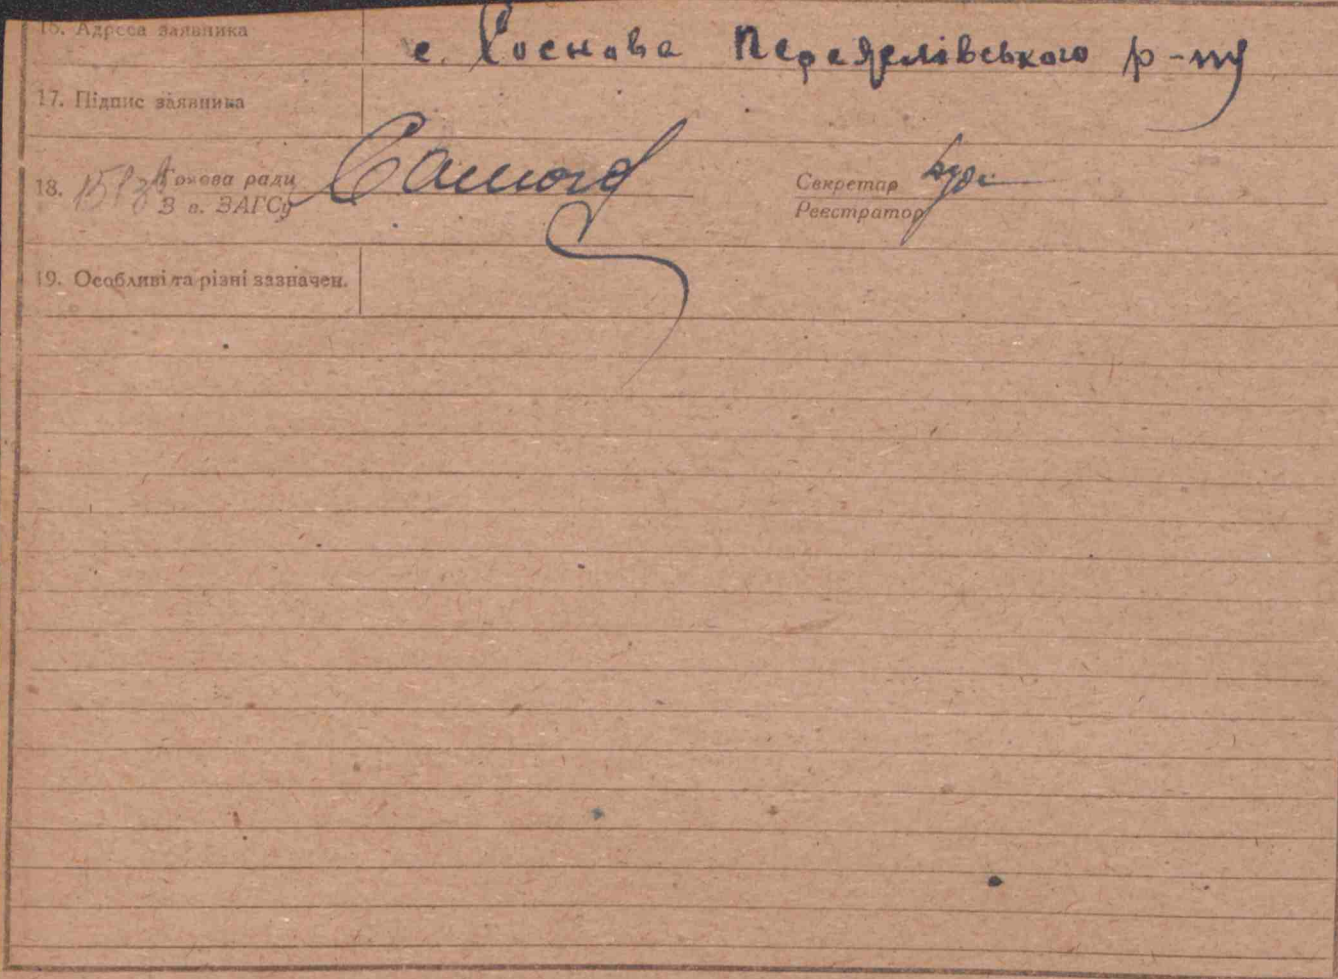 16. Адреса заявника с. Соснова Переяслівського р-ну
17. Підпис заявника
18. Голова ради Секретар
З в. ЗАГСу Реєстратор
19. Особливі та різні зазначен.